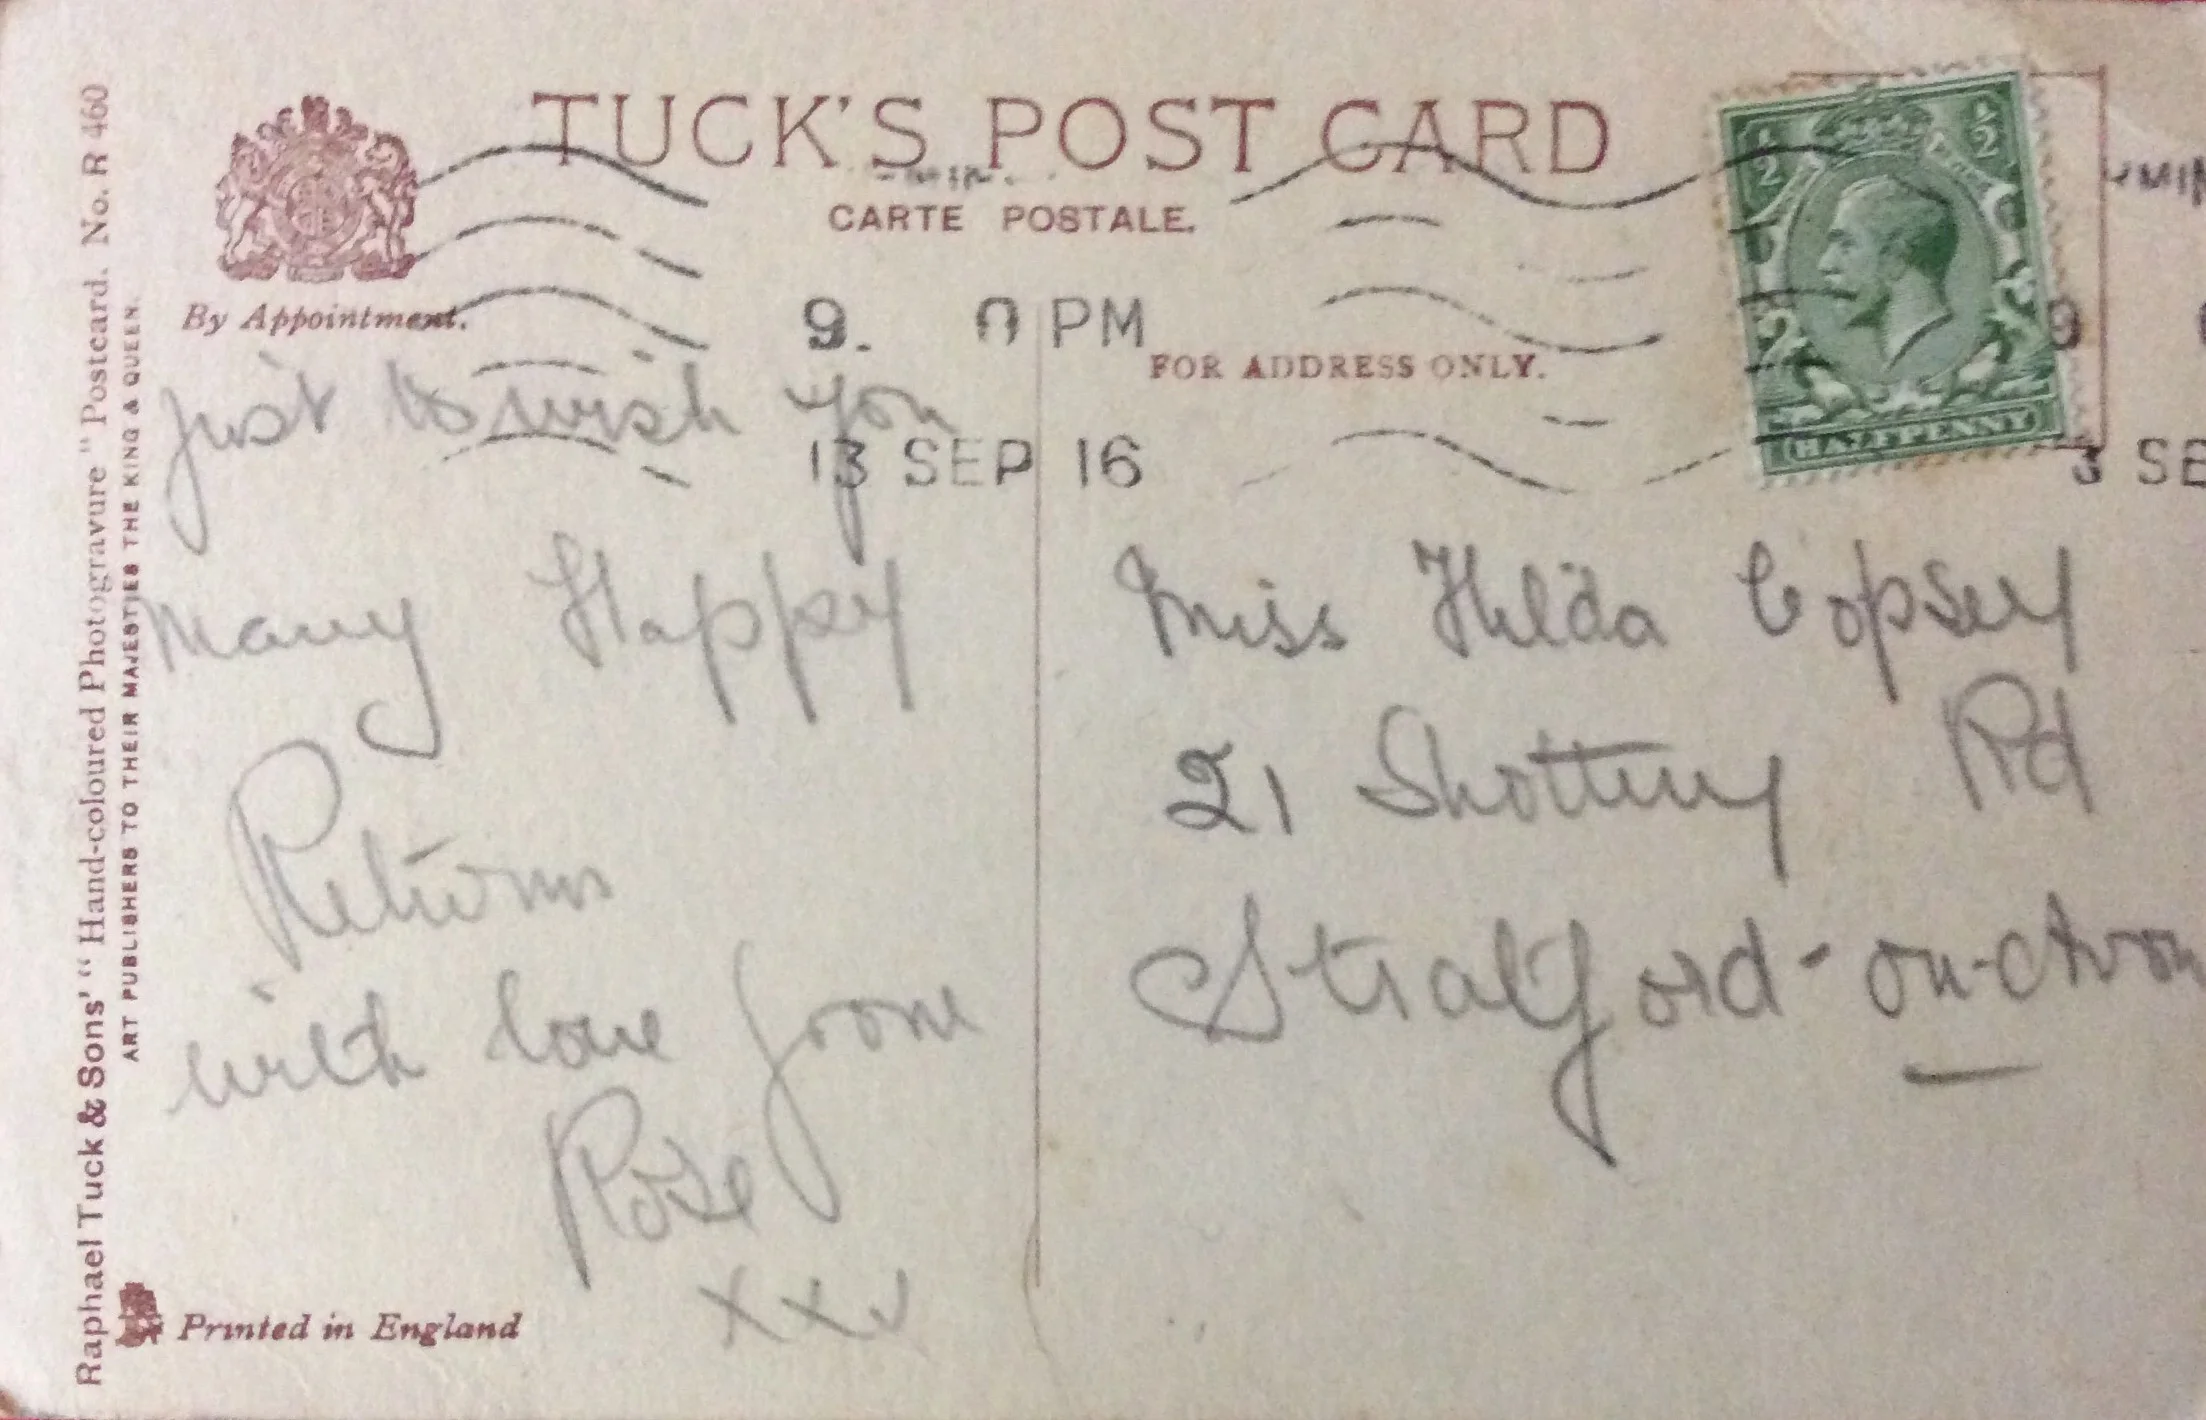 TUCK'S POST CARD
CARTE POSTALE.
By Appointment.
9. 0 PM
13 SEP 16
FOR ADDRESS ONLY.
1/2 1/2
HALFPENNY
MIN
9
3 SE
Just to wish you
Many Happy
Returns
with love from
Rose
x x x
Miss Hilda Copsey
21 Shottery Rd
Stratford-on-Avon
Raphael Tuck & Sons' "Hand-coloured Photogravure" Postcard. No. R 460
ART PUBLISHERS TO THEIR MAJESTIES THE KING & QUEEN.
Printed in England